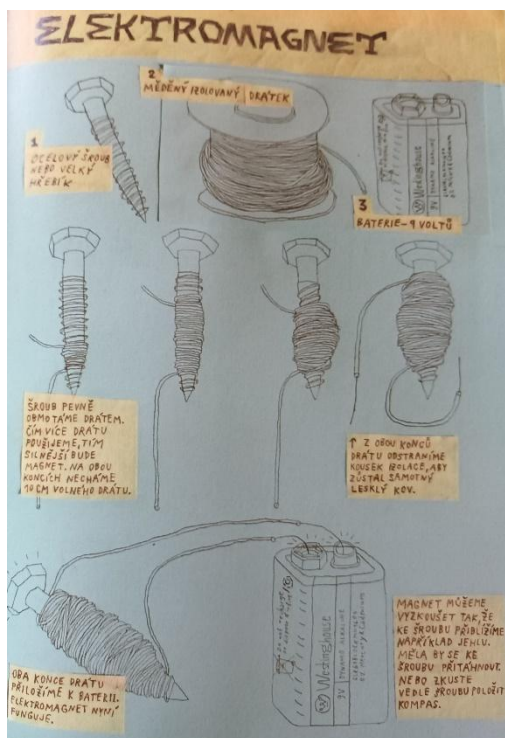 ELEKTROMAGNET
1
OCELOVÝ ŠROUB
NEBO VELKÝ
HŘEBÍK
2
MĚDĚNÝ IZOLOVANÝ DRÁTEK
Westinghouse
9V
3
BATERIE-9 VOLTŮ
ŠROUB PEVNĚ
OBMOTÁME DRÁTEM.
ČÍM VÍCE DRÁTU
POUŽIJEME, TÍM
SILNĚJŠÍ BUDE
MAGNET. NA OBOU
KONCÍCH NECHÁME
10 CM VOLNÉHO DRÁTU.
↑ Z OBOU KONCŮ
DRÁTU ODSTRANÍME
KOUSEK IZOLACE, ABY
ZŮSTAL SAMOTNÝ
LESKLÝ KOV.
OBA KONCE DRÁTU
PŘILOŽÍME K BATERII.
ELEKTROMAGNET NYNÍ
FUNGUJE.
Westinghouse
9V
MAGNET MŮŽEME
VYZKOUŠET TAK, ŽE
KE ŠROUBU PŘIBLÍŽÍME
NAPŘÍKLAD JEHLU.
MĚLA BY SE KE
ŠROUBU PŘITÁHNOUT.
NEBO ZKUSTE
VEDLE ŠROUBU POLOŽIT
KOMPAS.